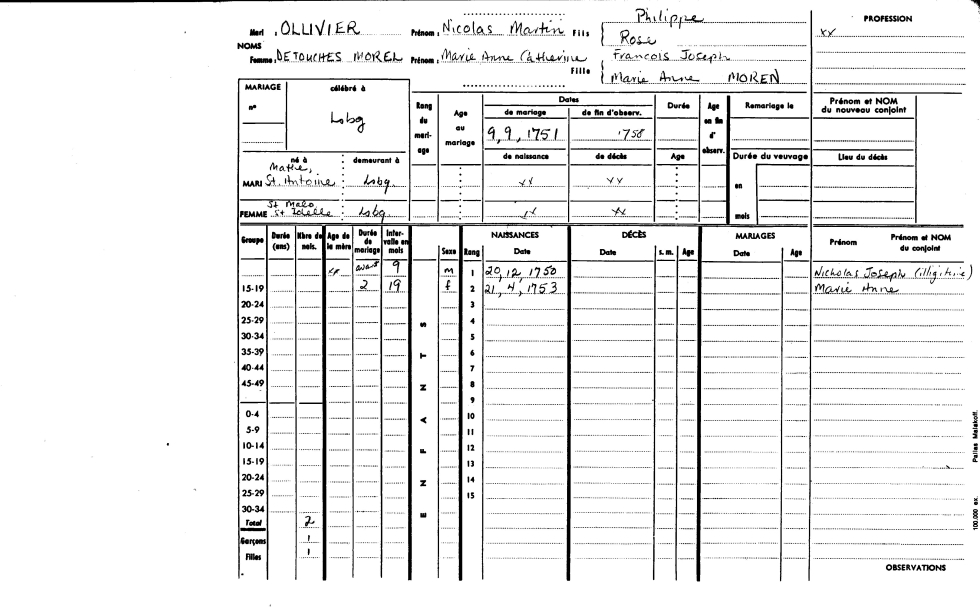 Mari , OLLIVIER Prénom , Nicolas Martin Fils { Philippe
Rose
PROFESSION
xx
NOMS
Femme , DETOUCHES MOREL Prénom , Marie Anne Catherine Fille { Francois Joseph
Marie Anne MOREN
MARIAGE célébré à
n° Lsbg
Rang du mari-age
Age au mariage
Dates
de mariage de fin d'observ.
9, 9, 1751 1758
de naissance de décès
Durée
Age
Age en fin d' observ.
Remariage le
Durée du veuvage
en
mois
Prénom et NOM du nouveau conjoint
Lieu du décès
né à demeurant à
MARI St. Antoine Lsbg. xx xx
St Malo
FEMME St Lsbg. xx xx
Groupe Durée (ans) Nbre de nais. Age de la mère Durée de mariage Inter-valle en mois
ENFANTS
Sexe Rang NAISSANCES Date DÉCÈS Date s. m. Age MARIAGES Date Age Prénom Prénom et NOM du conjoint
xx avant 9 m 1 20, 12, 1750 Nicholas Joseph (illigitimie)
15-19 2 19 f 2 21, 4, 1753 Marie Anne
20-24 3
25-29 4
30-34 5
35-39 6
40-44 7
45-49 8
9
0-4 10
5-9 11
10-14 12
15-19 13
20-24 14
25-29 15
30-34
Total 2
Garçons 1
Filles 1
OBSERVATIONS
100.000 ex. Pallas Malakoff.